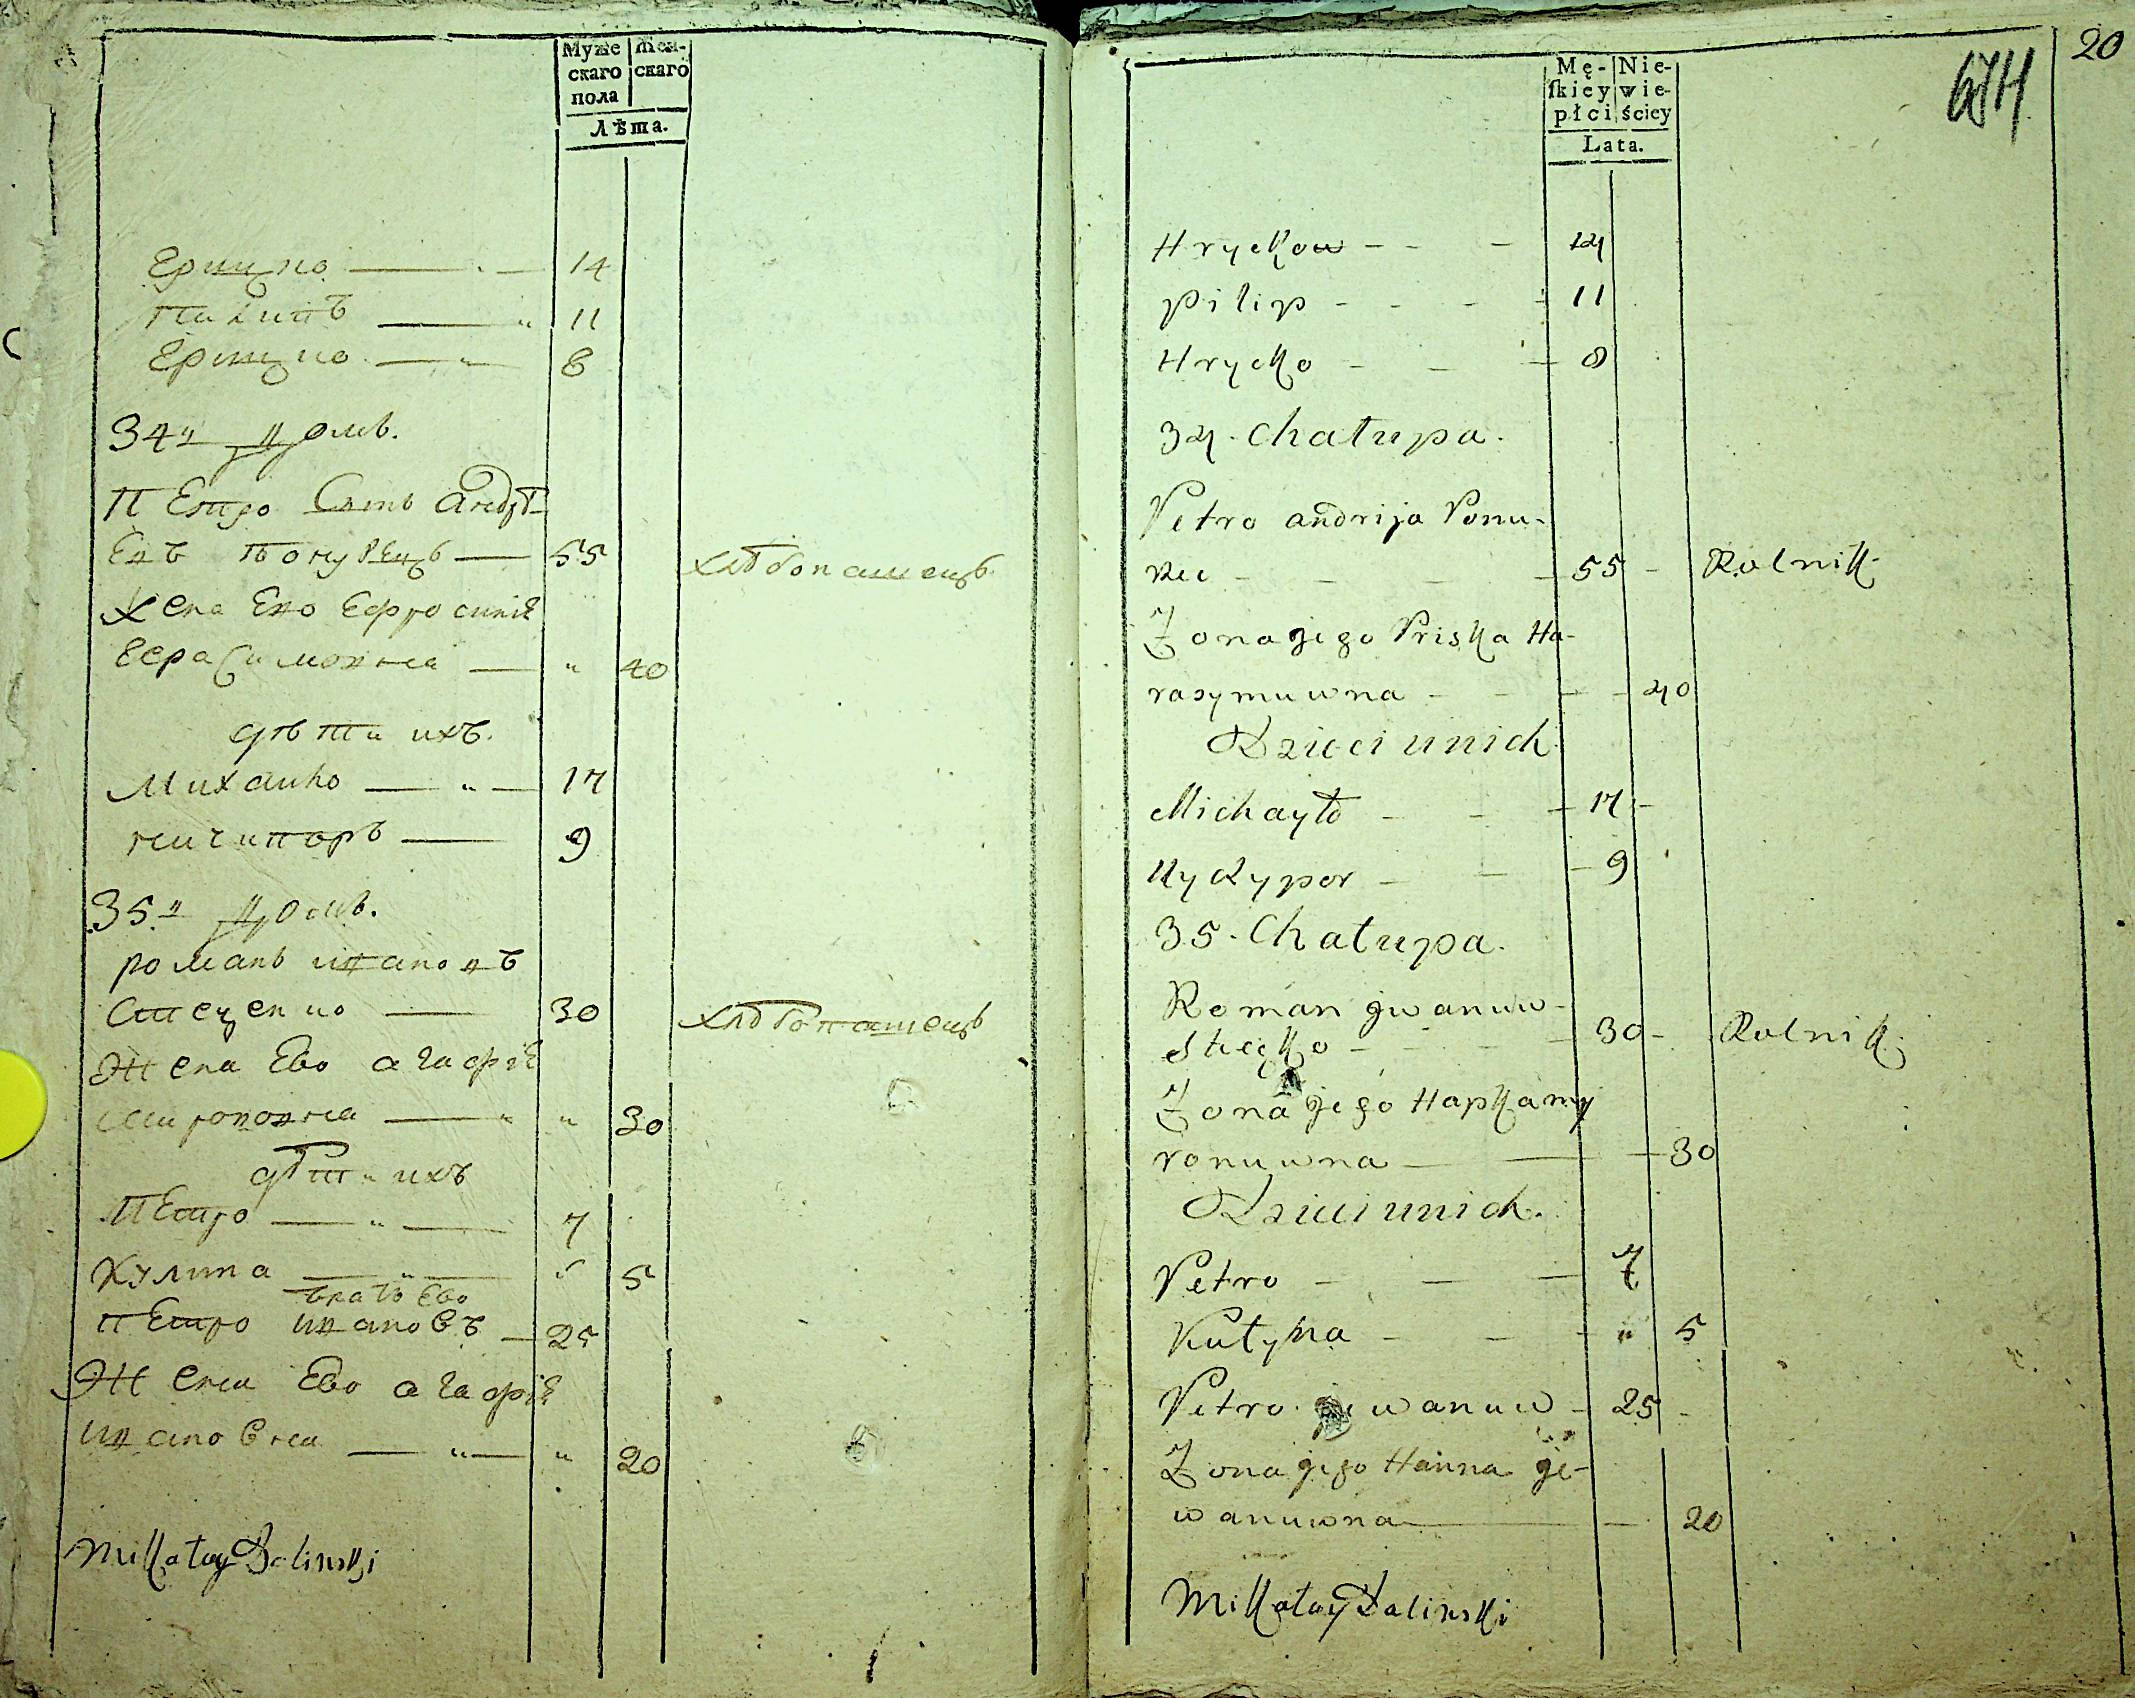 Муже
скаго
пола
жен-
скаго
Лѣта.
Грицко 14
Пилипъ 11
Грицко 8
34й домъ.
Петро Сынъ андрѣ-
евъ 55 хлѣбопашецъ
жена Ево Ефросинія
Герасимовна " 40
дѣти ихъ.
Михайло 17
ничипоръ 9
35й домъ.
романъ ивановъ
Стеценко 30 хлѣбопашецъ
Жена Ево агафія
мироновна " 30
дѣти ихъ
Петро 7
Кулина " 5
братъ Ево
петро ивановъ 25
Жена Ево агафія
ивановна " 20
Mikołay Dalinski
20
Mę-
skiey
płci
Nie-
wie-
ściey
Lata.
Hrycko 14
pilip 11
Hrycko 8
34. Chałupa.
Petro andrija Ponu-
rec 55 Rolnik
Zona jego Priska Ha-
rasymuwna 40
Dzieci u nich
Michayło 17
Nyczypor 9
35. Chałupa.
Roman jwanuw
Steczko 30 Rolnik
Zona jego Hapka my
ronuwna 30
Dzieci u nich.
Petro 7
Kułyna " 5
Petro jwanuw 25
Zona jego Hanna je-
wanuwna 20
Mikołay Dalinski